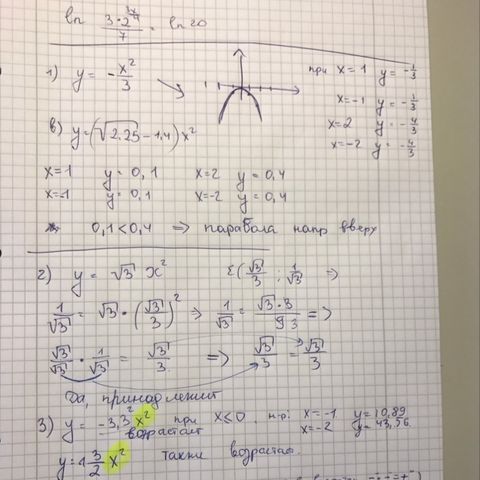 ln 3·2^(3x/4)/7 · ln 20
1) y = -x²/3
при x=1 y=-1/3
x=-1 y=-1/3
x=2 y=-4/3
x=-2 y=-4/3
в) y=(√2.25-1.4)x²
x=1 y=0,1 x=2 y=0,4
x=-1 y=0,1 x=-2 y=0,4
0,1<0,4 => парабола напр вверх
2) y = √3 x² E(√3/3 ; 1/√3 =>
1/√3 = √3·(√3/3)² => 1/√3 = √3·3/93 =>
√3/√3 · 1/√3 = √3/3 => √3/3 = √3/3
Да, принадлежит
3) y = -3,3²x² при x≤0, н-р: x=-1 y=10,89
возрастает x=-2 y=43,56
y=1 3/2 x² также возрастает.